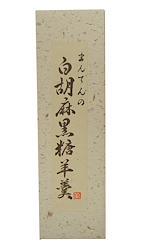 まんてんの
白胡麻黒糖羊羹